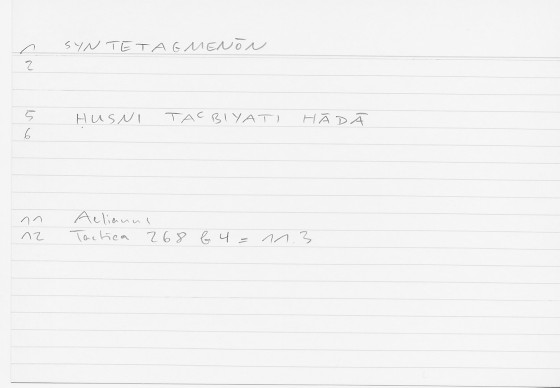 1 SYNTETAGMENŌN
2
5 ḤUSNI TAʿBIYATI HĀḎĀ
6
11 Aelianus
12 Tactica 268 b 4 = 11 3